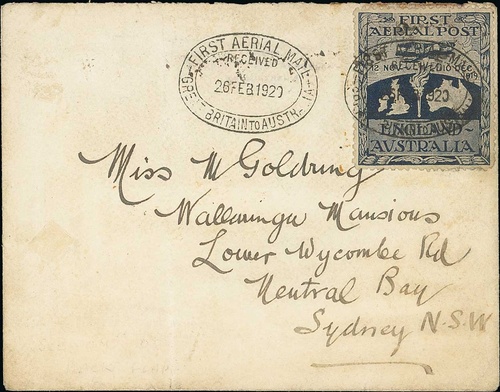 FIRST AERIAL MAIL
RECEIVED
26 FEB 1920
GREAT BRITAIN TO AUSTR
FIRST
AERIAL POST
12 NOV
RECEIVED
10 DEC
1919
1920
ENGLAND
AUSTRALIA
Miss M Goldring
Wallaringa Mansions
Lower Wycombe Rd
Neutral Bay
Sydney N.S.W